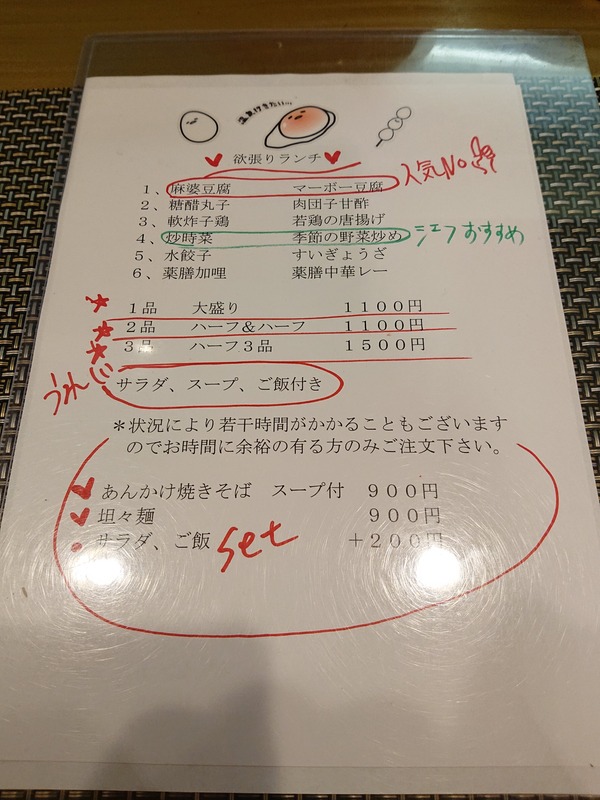 温泉行きたい…
欲張りランチ
1、麻婆豆腐 マーボー豆腐 人気No
2、糖醋丸子 肉団子甘酢
3、軟炸子鶏 若鶏の唐揚げ
4、炒時菜 季節の野菜炒め シェフおすすめ
5、水餃子 すいぎょうざ
6、薬膳加哩 薬膳中華レー
1品 大盛り 1100円
2品 ハーフ&ハーフ 1100円
3品 ハーフ3品 1500円
うれしい
サラダ、スープ、ご飯付き
*状況により若干時間がかかることもございます
のでお時間に余裕の有る方のみご注文下さい。
あんかけ焼きそば スープ付 900円
坦々麺 900円
サラダ、ご飯 set +200円